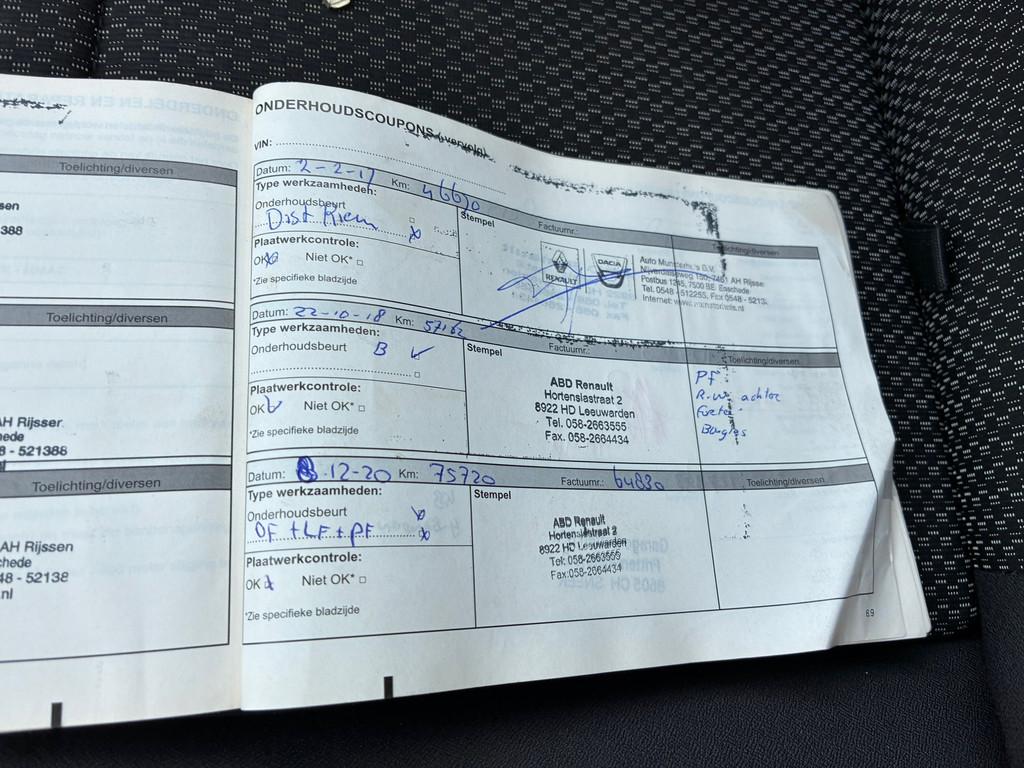 Toelichting/diversen
388
Toelichting/diversen
AH Rijssen
8 - 521388
Toelichting/diversen
AH Rijssen
48 - 52138
.nl
ONDERHOUDSCOUPONS (vervolg)
VIN:
Datum: 2-2-17 Km: 46690
Type werkzaamheden:
Onderhoudsbeurt
Dist Riem
Plaatwerkcontrole:
OK Niet OK*
*Zie specifieke bladzijde
Stempel
Factuurnr.:
Toelichting/diversen
RENAULT
DACIA
AH Rijssen
Postbus 1245, 7500 BE Enschede
Tel. 0548 - 512255, Fax 0548 - 5213
Datum: 22-10-18 Km: 57162
Type werkzaamheden:
Onderhoudsbeurt B
Plaatwerkcontrole:
OK Niet OK*
*Zie specifieke bladzijde
Stempel
Factuurnr.:
Toelichting/diversen
ABD Renault
Hortensiastraat 2
8922 HD Leeuwarden
Tel. 058-2663555
Fax. 058-2664434
Pf
achter
Datum: 12-20 Km: 75720 Factuurnr.: 64830
Toelichting/diversen
Type werkzaamheden:
Onderhoudsbeurt
OF + LF + PF
Plaatwerkcontrole:
OK Niet OK*
*Zie specifieke bladzijde
Stempel
ABD Renault
Hortensiastraat 2
8922 HD Leeuwarden
Tel: 058-2663555
Fax:058-2664434